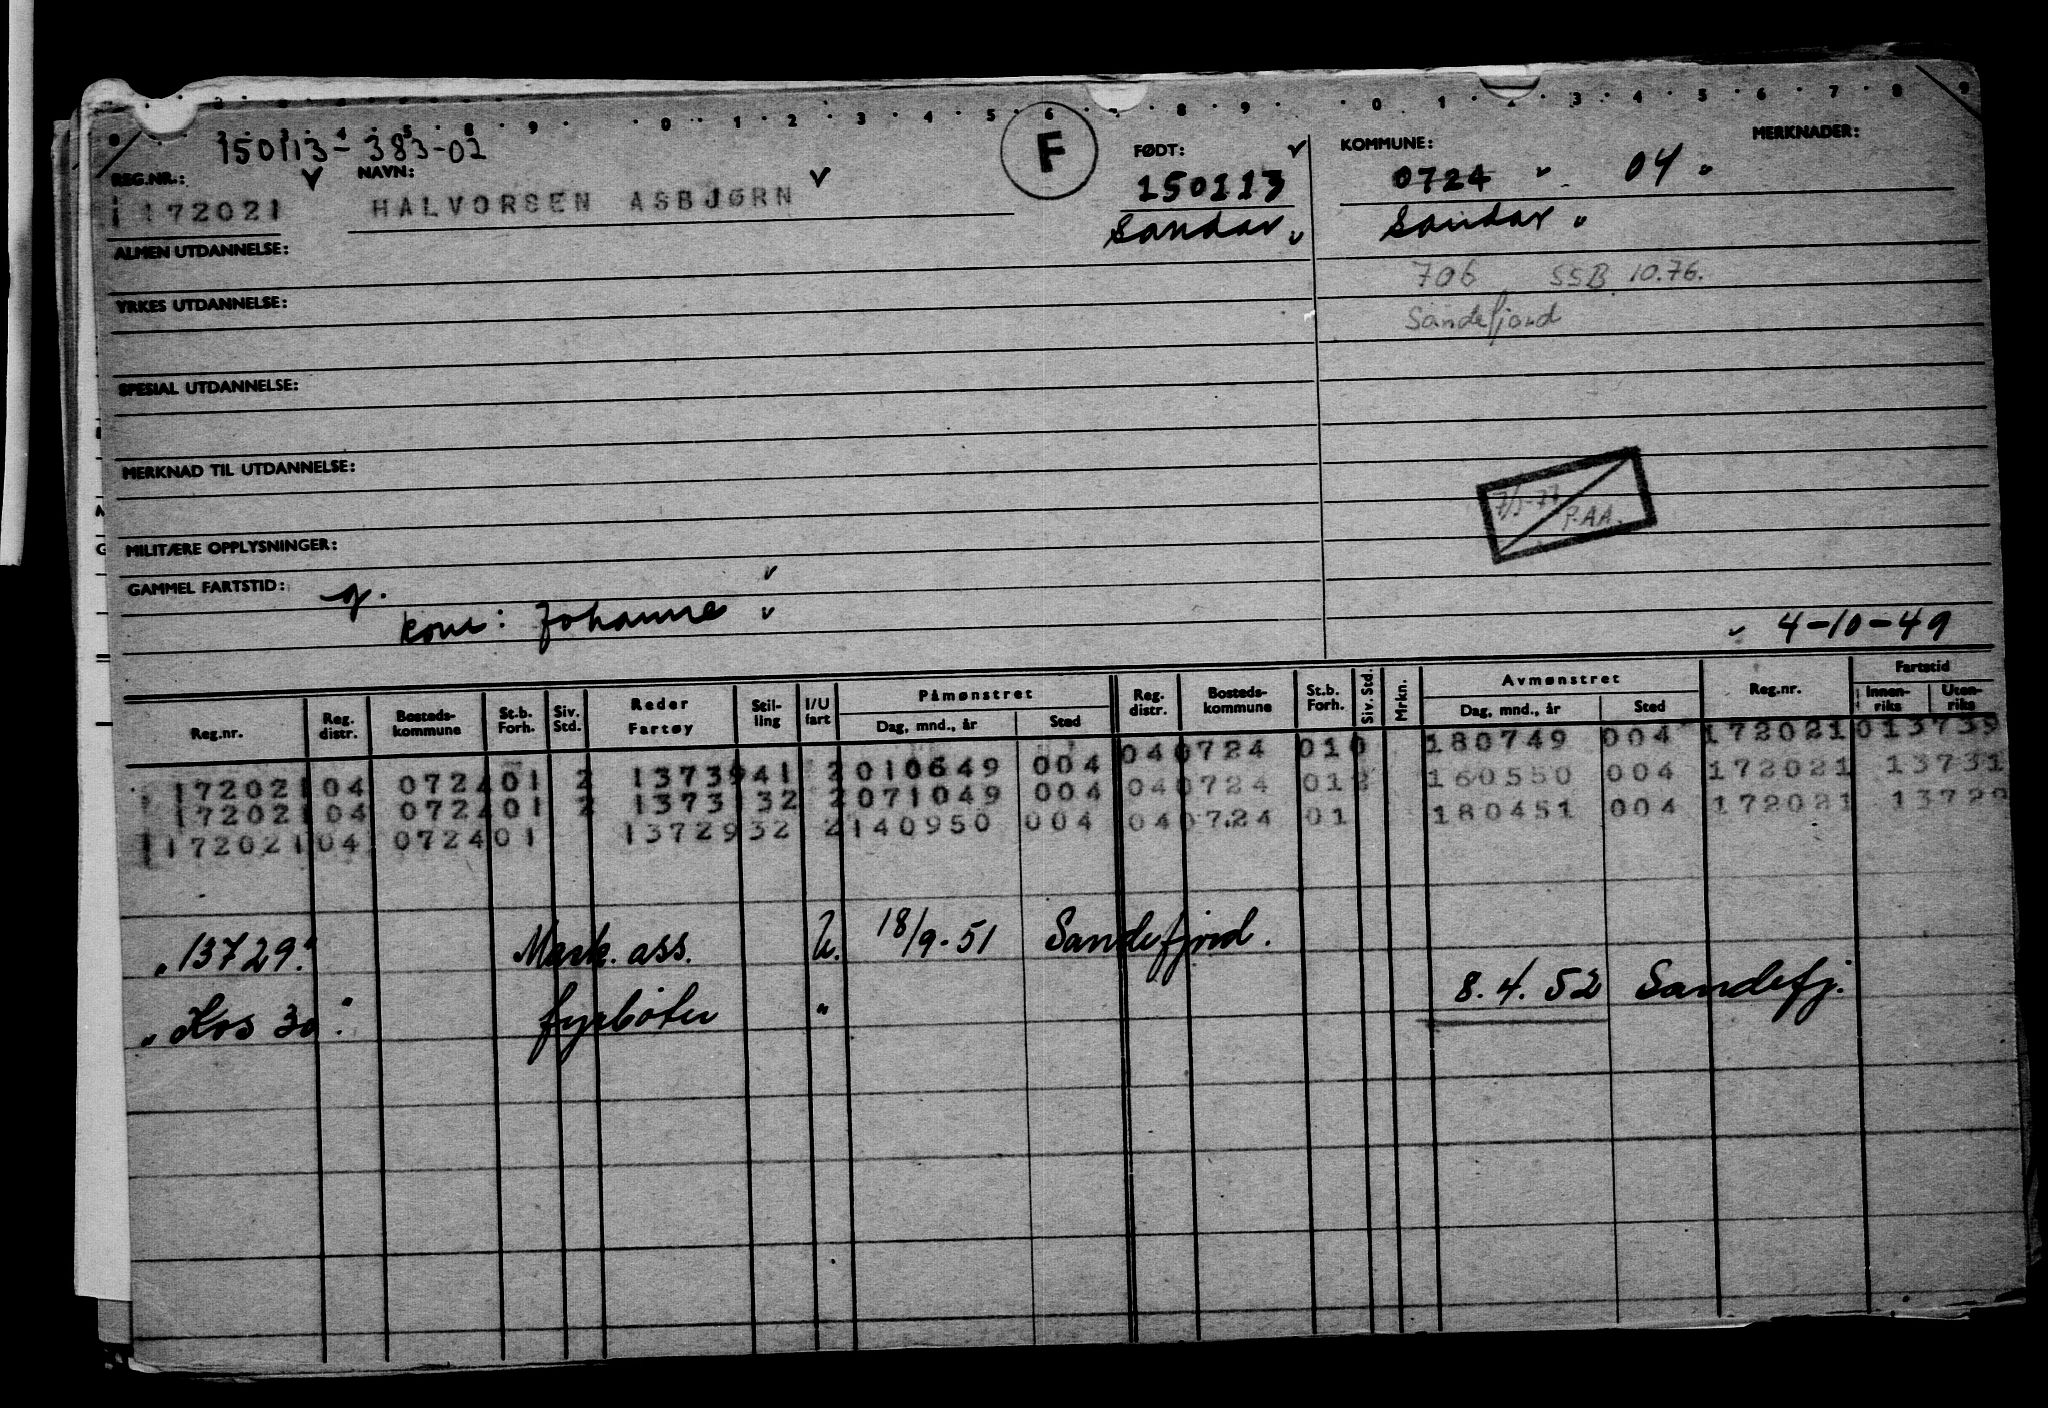 150113-383-02
REG.NR.: NAVN: F FØDT: KOMMUNE: MERKNADER:
172021 HALVORSEN ASBJØRN 150113 0724 04
Sandar Sandar
ALMEN UTDANNELSE:
706 SSB 10.76.
YRKES UTDANNELSE:
Sandefjord
SPESIAL UTDANNELSE:
MERKNAD TIL UTDANNELSE:
P.AA.
MILITÆRE OPPLYSNINGER:
GAMMEL FARTSTID: g.
kone: Johanne
4-10-49
Reg.nr. Reg. distr. Bosteds-kommune St.b. Forh. Siv. Std. Reder Fartøy Stil-ling I/U fart Påmønstret Dag, mnd., år Sted Reg. distr. Bosteds-kommune St.b. Forh. Siv. Std. Mrkn. Avmønstret Dag, mnd., år Sted Reg.nr. Fartstid Innen-riks Uten-riks
172021 04 0724 01 2 13739 41 2 010649 004 04 0724 01 0 180749 004 172021 013739
172021 04 0724 01 2 13731 32 2 071049 004 04 0724 01 2 160550 004 172021 13731
172021 04 0724 01 13729 32 2 140950 004 04 0724 01 180451 004 172021 13729
"13729" Mask. ass. U. 18/9-51 Sandefjord.
"Kos 30". fyrbøter " 8.4.52 Sandefj.